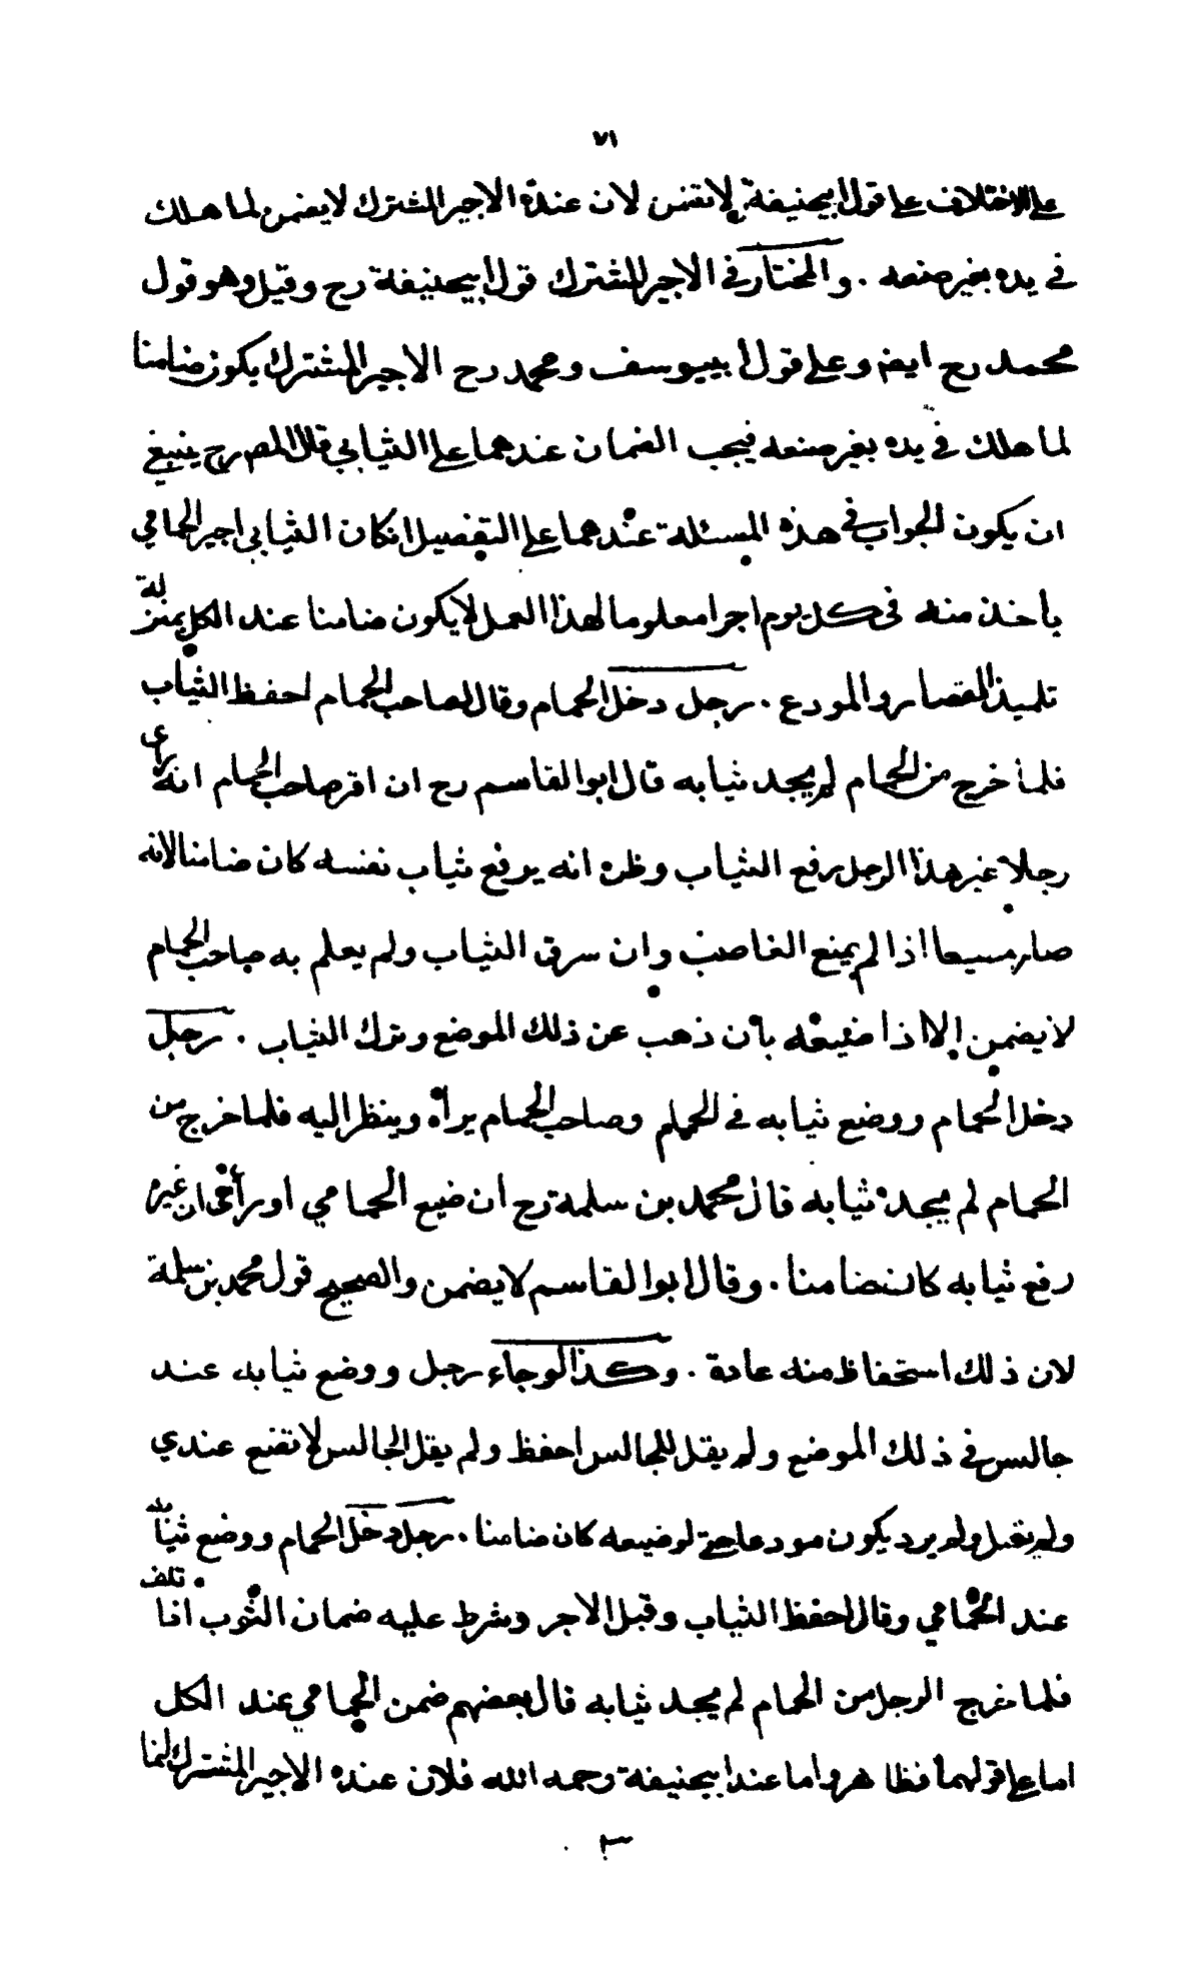 ٧١
على الاختلاف على قول ابيحنيفة لا تضمن لان عنده الاجير المشترك لا يضمن لما هلك
في يده بغير صنعه . والمختار في الاجير المشترك قول ابيحنيفة رح وقيل وهو قول
محمد رح ايض وعلى قول ابييوسف ومحمد رح الاجير المشترك يكون ضامنا
لما هلك في يده بغير صنعه فيجب الضمان عندهما على الثيابي قال المص رح ينبغي
ان يكون الجواب في هذه المسئلة عندهما على التفصيل انكان الثيابي اجير الحمامي
يأخذ منه في كل يوم اجرا معلوما لهذا العمل لا يكون ضامنا عند الكل بمنزلة
تلميذ القصار والمودع . رجل دخل الحمام وقال لصاحب الحمام احفظ الثياب
فلما خرج من الحمام لم يجد ثيابه قال ابو القاسم رح ان اقر صاحب الحمام انه رأى
رجلا غير هذا الرجل رفع الثياب وظن انه يرفع ثياب نفسه كان ضامنا لانه
صار مضيعا اذا لم يمنع الغاصب وان سرق الثياب ولم يعلم به صاحب الحمام
لا يضمن الا اذا ضيعه بان ذهب عن ذلك الموضع وترك الثياب . رجل
دخل الحمام ووضع ثيابه في الحمام وصاحب الحمام يراه وينظر اليه فلما خرج من
الحمام لم يجد ثيابه قال محمد بن سلمة رح ان ضيع الحمامي او رأى ان غيره
رفع ثيابه كان ضامنا . وقال ابو القاسم لا يضمن والصحيح قول محمد بن سلمة
لان ذلك استحفاظ منه عادة . وكذا لو جاء رجل ووضع ثيابه عند
جالس في ذلك الموضع ولم يقل للجالس احفظ ولم يقل الجالس لا تضع عندي
ولم يقبل ولم يرد يكون مودعا حتى لو ضيعه كان ضامنا . رجل دخل الحمام ووضع ثيابه
عند الحمامي وقال احفظ الثياب وقبل الاجر وشرط عليه ضمان الثوب اذا تلف
فلما خرج الرجل من الحمام لم يجد ثيابه قال بعضهم ضمن الحمامي عند الكل
اما على قولهما فظاهر واما عند ابيحنيفة رحمه الله فلان عنده الاجير المشترك انما